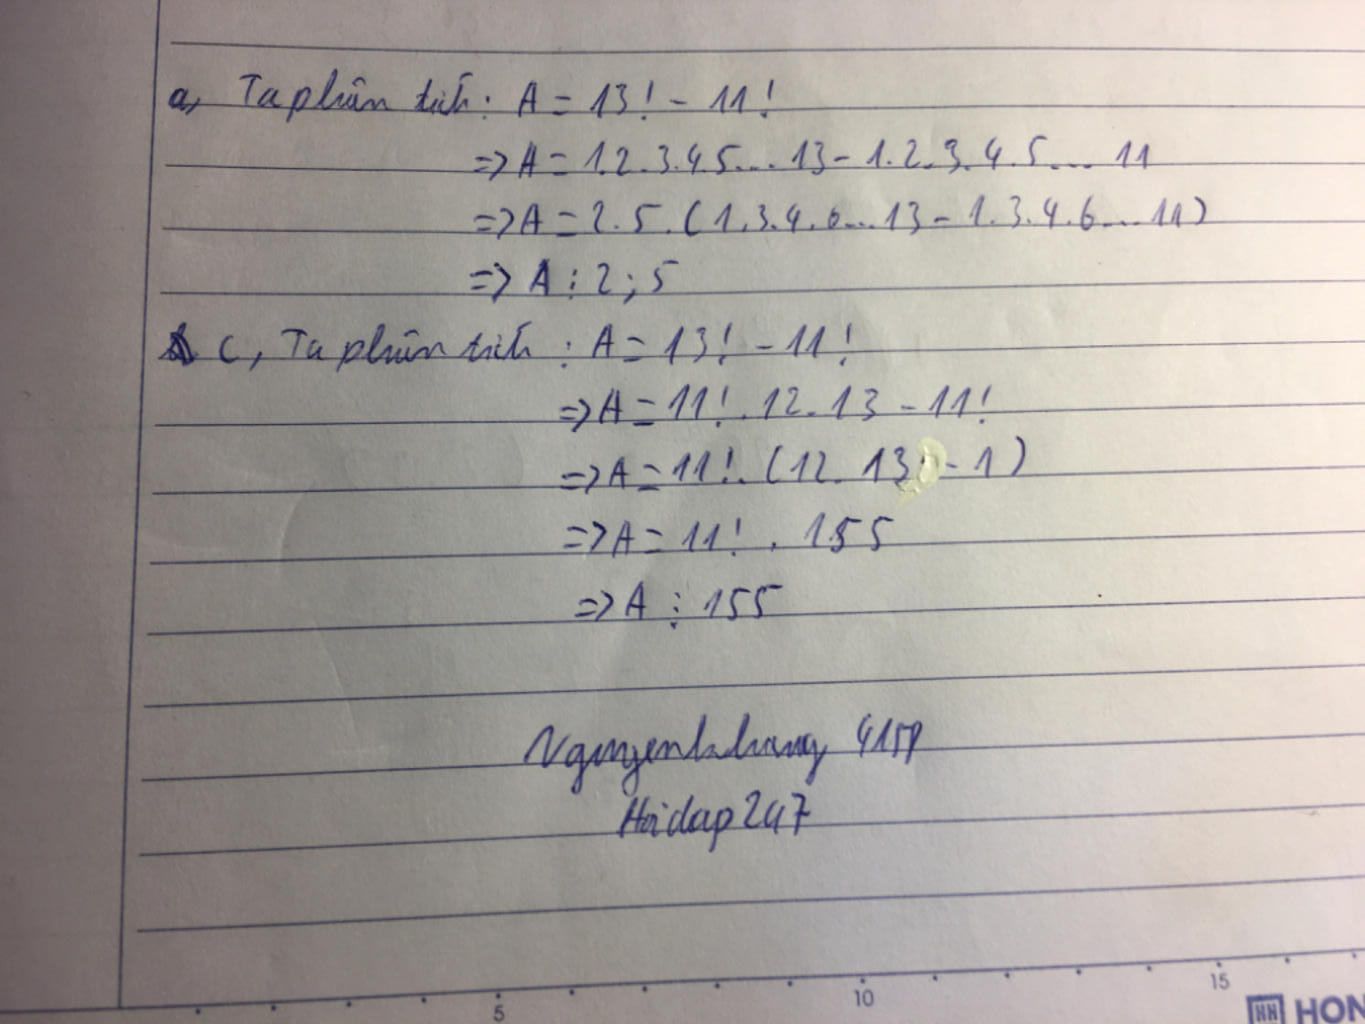 a, Ta phân tích: A = 13! - 11!
=> A = 1.2.3.4.5...13 - 1.2.3.4.5...11
=> A = 2.5.(1.3.4.6...13 - 1.3.4.6...11)
=> A ⋮ 2 ; 5
c, Ta phân tích : A = 13! - 11!
=> A = 11!.12.13 - 11!
=> A = 11!.(12.13 - 1)
=> A = 11! . 155
=> A ⋮ 155
Hoidap247
5
10
15
HON